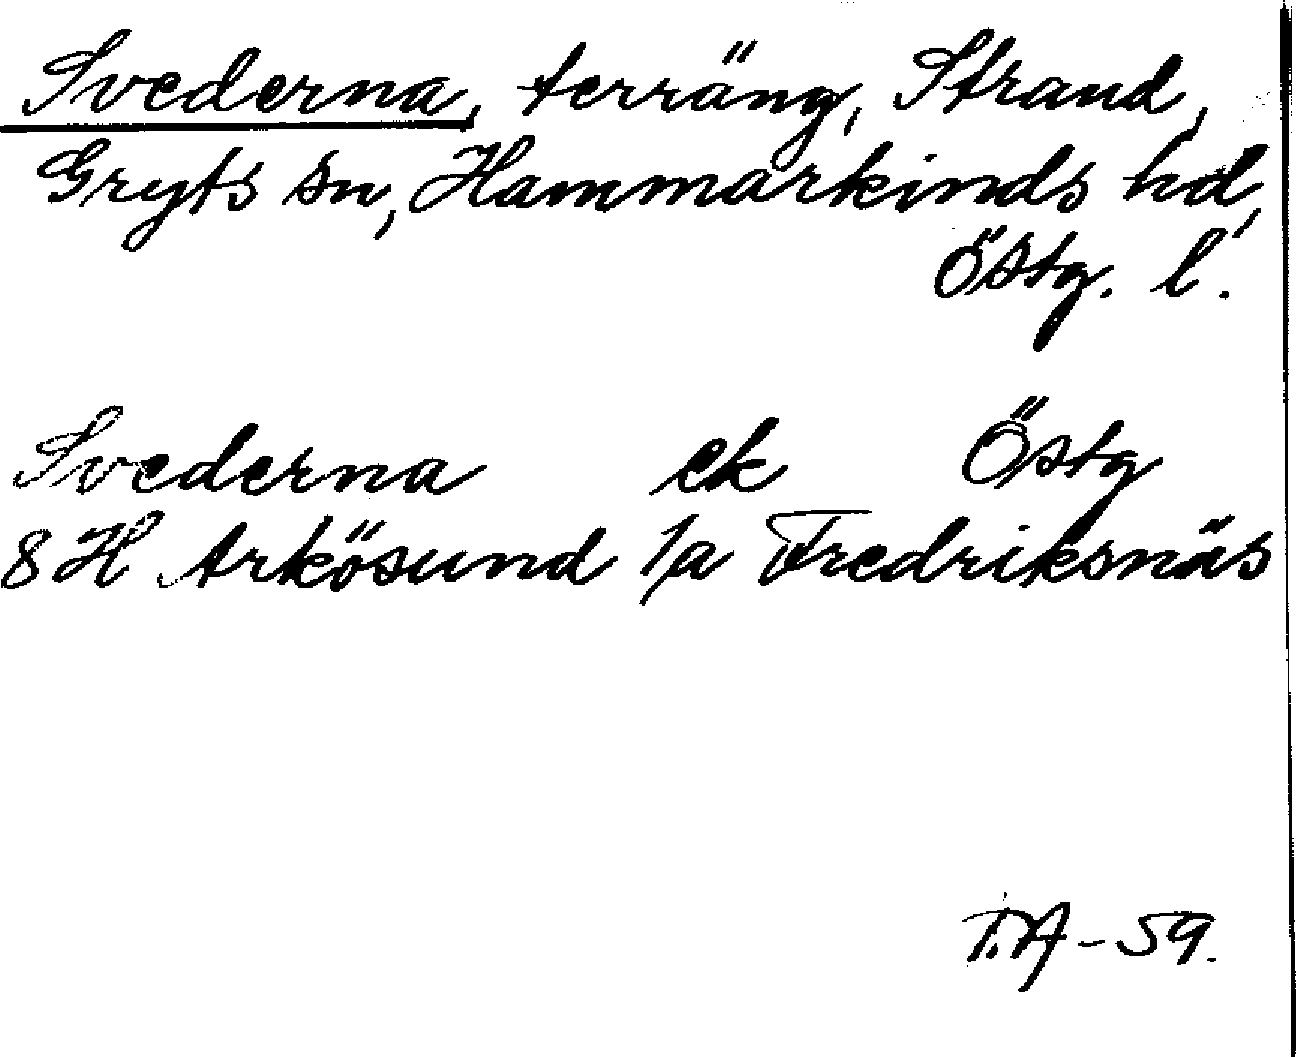 Svederna, terräng, Strand,
Gryts sn, Hammarkinds hd,
Östg. l.
Svederna ek Östg
8 H Arkösund 1/a Fredriksnäs
T.A-59.